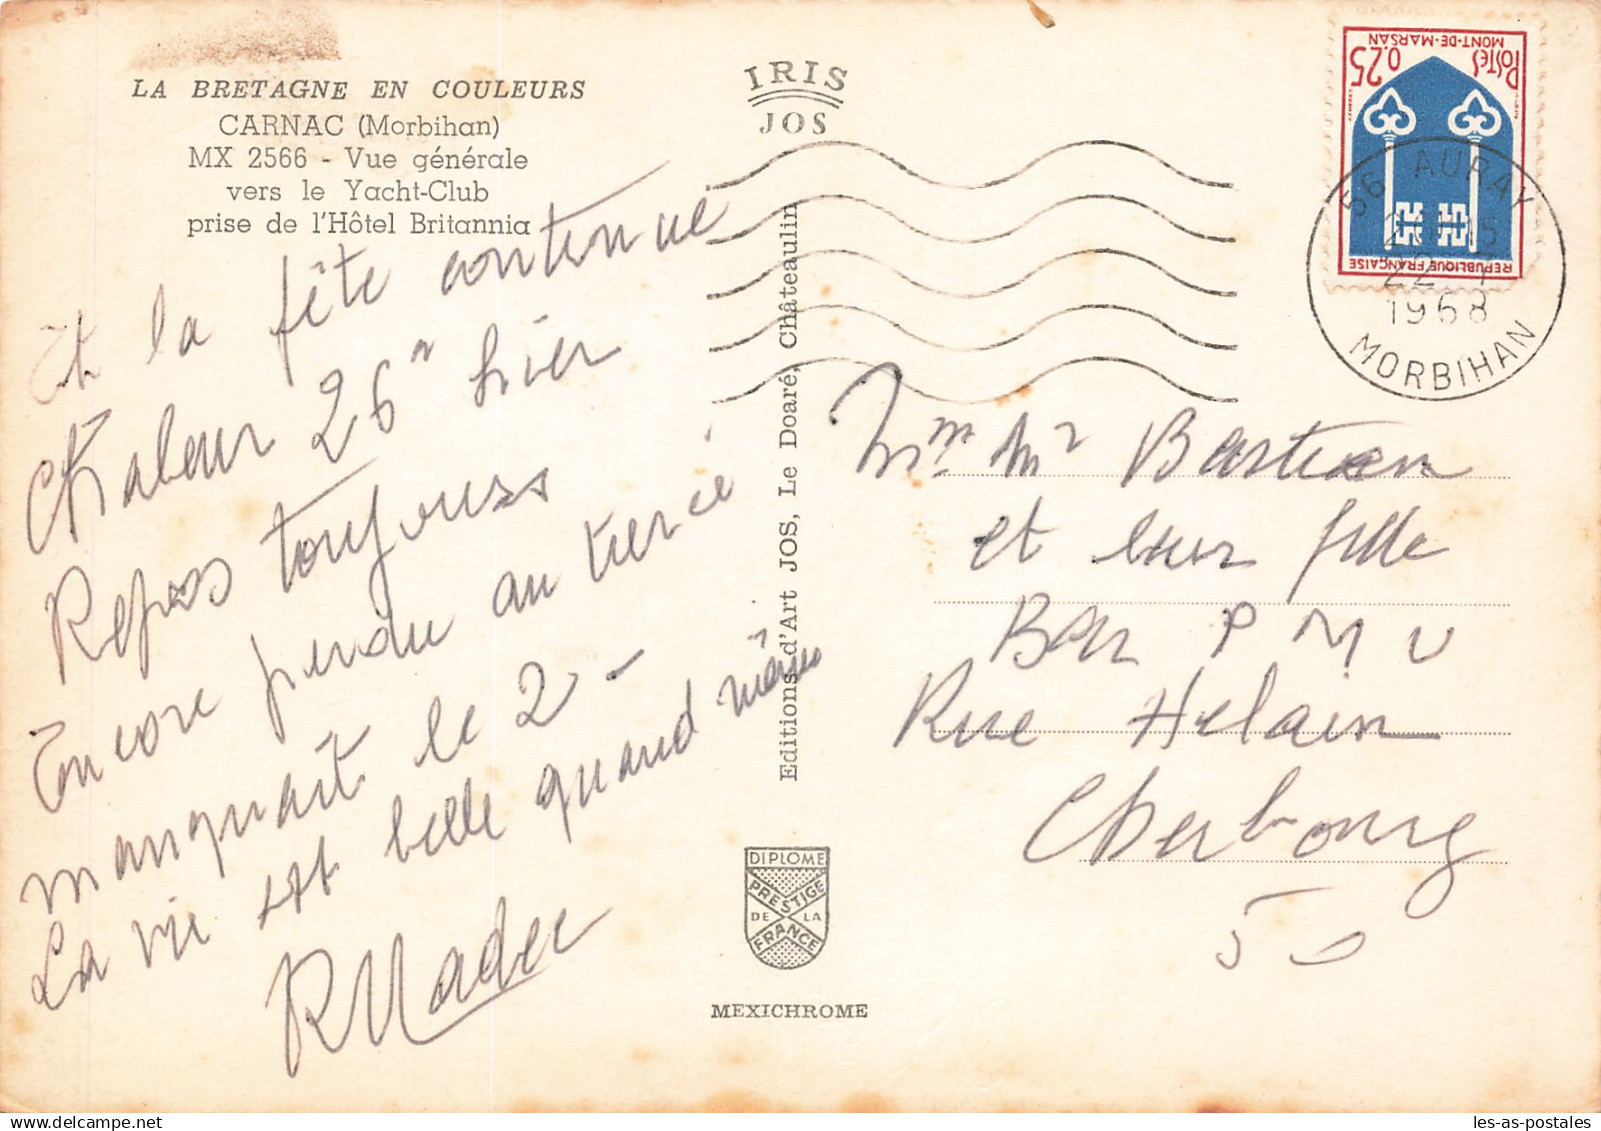 LA BRETAGNE EN COULEURS
CARNAC (Morbihan)
MX 2566 - Vue générale
vers le Yacht-Club
prise de l'Hôtel Britannia
Et la fête continue
Chaleur 26° hier
Repos toujours
Encore perdu au tiercé
manquait le 2 -
La vie est belle quand même
IRIS
JOS
Editions d'Art JOS, Le Doaré, Châteaulin
DIPLOME
PRESTIGE
DE LA
FRANCE
MEXICHROME
POSTES
0.25
MONT-DE-MARSAN
REPUBLIQUE FRANÇAISE
56 AURAY
22 - 7
1968
MORBIHAN
Mme Mr Bastien
et leur fille
Bar P M U
Rue Helain
Cherbourg
50
les-as-postales